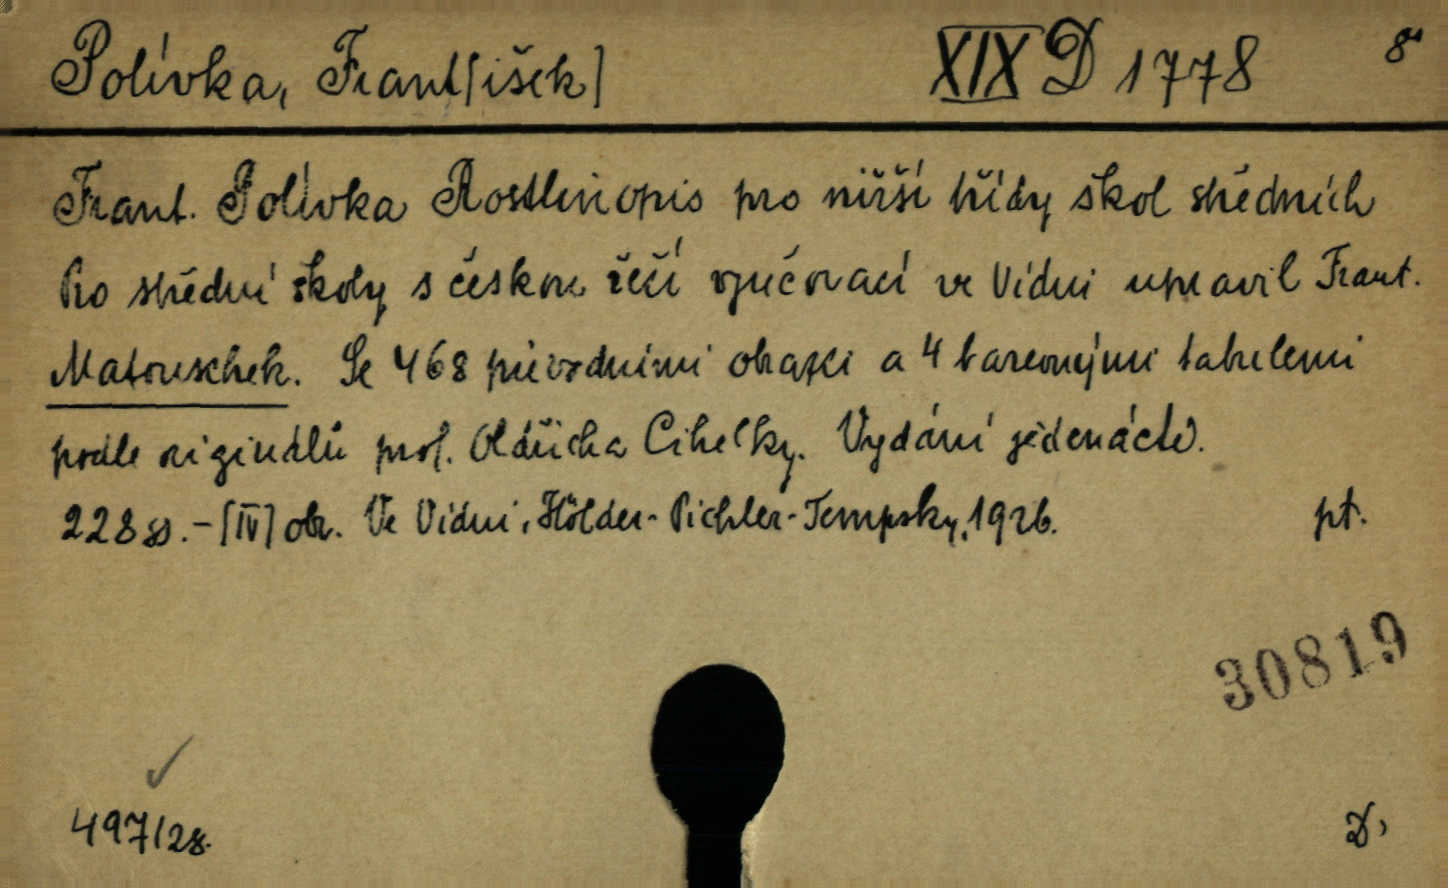 Polívka, Frant[išek] XIX D 1778 8°
Frant. Polívka Rostlinopis pro nižší třídy škol středních
Pro střední školy s českou řečí vyučovací ve Vídni upravil Frant.
Matouschek. Se 468 původními obrazci a 4 barevnými tabulemi
podle originálů prof. Oldřicha Cihelky. Vydání jedenácté.
228 ss. - [IV] obr. Ve Vídni, Hölder-Pichler-Tempsky, 1926. pt.
30819
497/28. D,